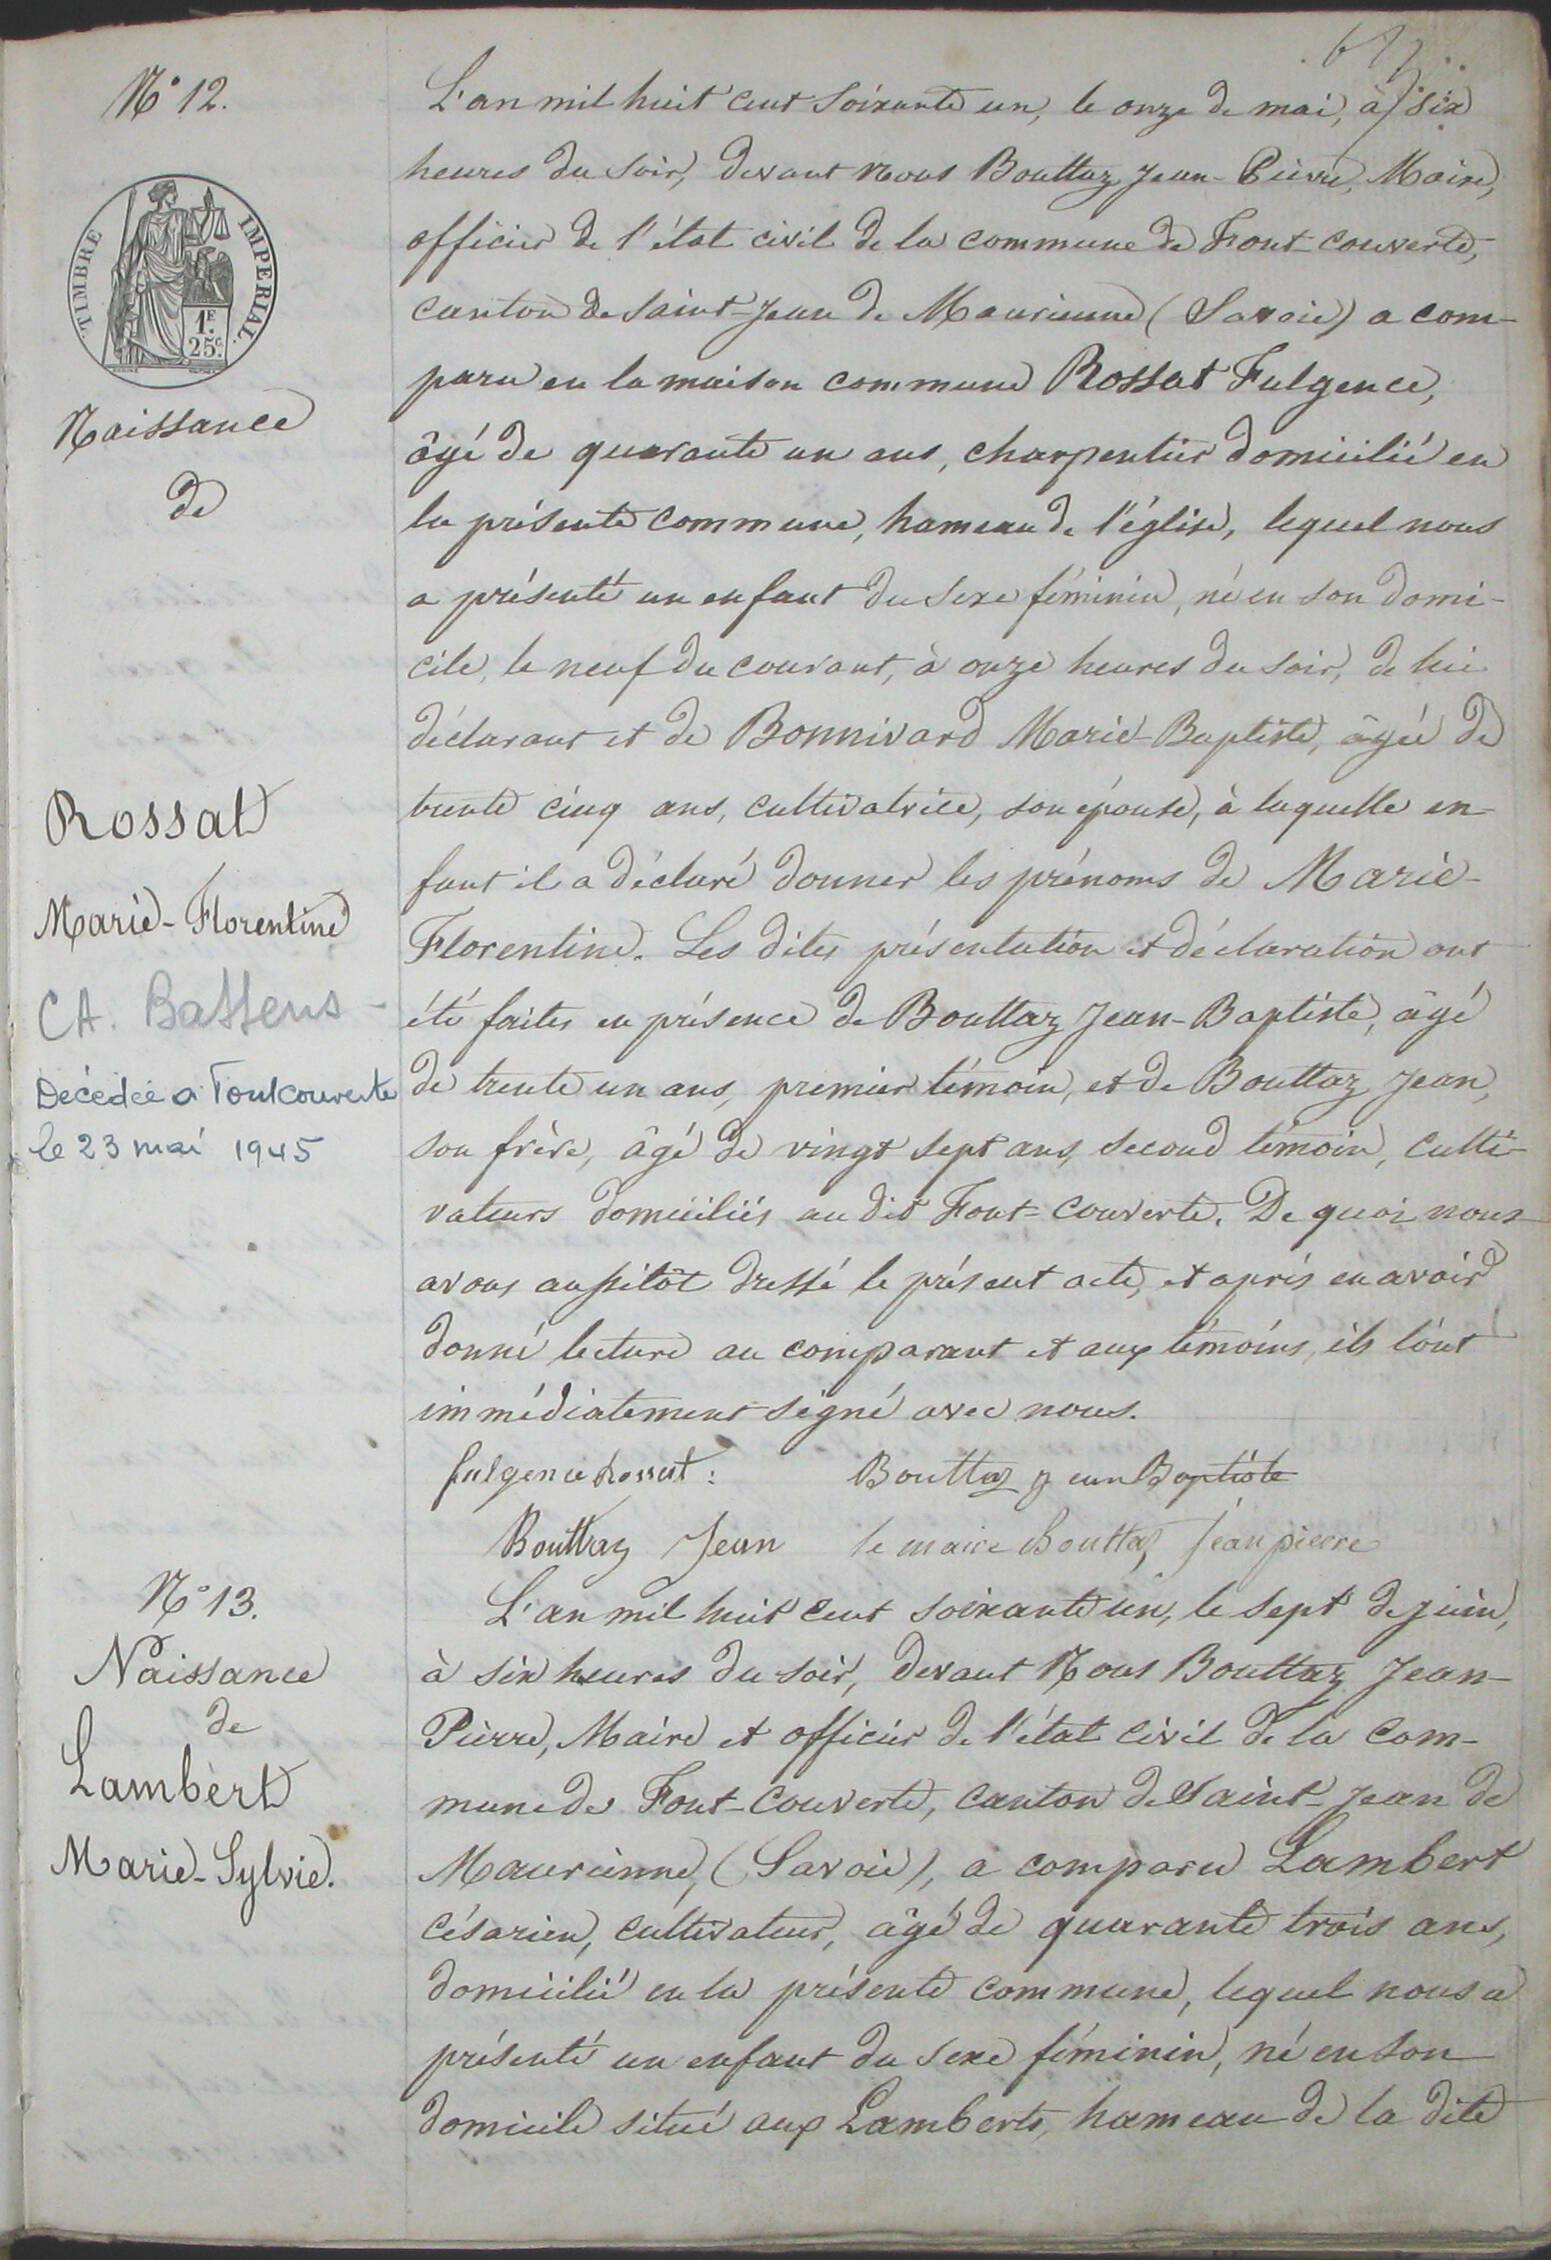 N° 12.
TIMBRE IMPERIAL.
1F.
25c.
Naissance
de
Rossat
Marie-Florentine
CA. Bassens -
Décédée a Fontcouverte
le 23 mai 1945
L'an mil huit cent soixante un, le onze de mai, à six
heures du soir, devant nous Bouttaz Jean-Pierre, Maire,
officier de l'état civil de la commune de Font-couverte,
canton de Saint-Jean de Maurienne (Savoie) a com-
paru en la maison commune Rossat Fulgence,
âgé de quarante un ans, charpentier domicilié en
la présente commune, hameau de l'église, lequel nous
a présenté un enfant du sexe féminin, né en son domi-
cile, le neuf du courant, à onze heures du soir, de lui
déclarant et de Bonnivard Marie-Baptiste, âgée de
trente cinq ans, cultivatrice, son épouse, à laquelle en-
fant il a déclaré donner les prénoms de Marie-
Florentine. Les dites présentation et déclaration ont
été faites en présence de Bouttaz Jean-Baptiste, âgé
de trente un ans, premier témoin, et de Bouttaz Jean,
son frère, âgé de vingt sept ans, second témoin, culti-
vateurs domiciliés au dit Font-couverte. De quoi nous
avons aussitôt dressé le présent acte, et après en avoir
donné lecture au comparant et aux témoins, ils l'ont
immédiatement signé avec nous.
fulgence Rossat : Bouttaz jean Baptiste
Bouttaz Jean le maire Bouttaz Jean pierre
N° 13.
Naissance
de
Lambert
Marie-Sylvie.
L'an mil huit cent soixante un, le sept de juin,
à six heures du soir, devant Nous Bouttaz Jean-
Pierre, Maire et officier de l'état civil de la com-
mune de Font-couverte, canton de Saint-Jean de
Maurienne, (Savoie), a comparu Lambert
Césarien, cultivateur, âgé de quarante trois ans,
domicilié en la présente commune, lequel nous a
présenté un enfant du sexe féminin, né en son
domicile situé aux Lamberts, hameau de la dite